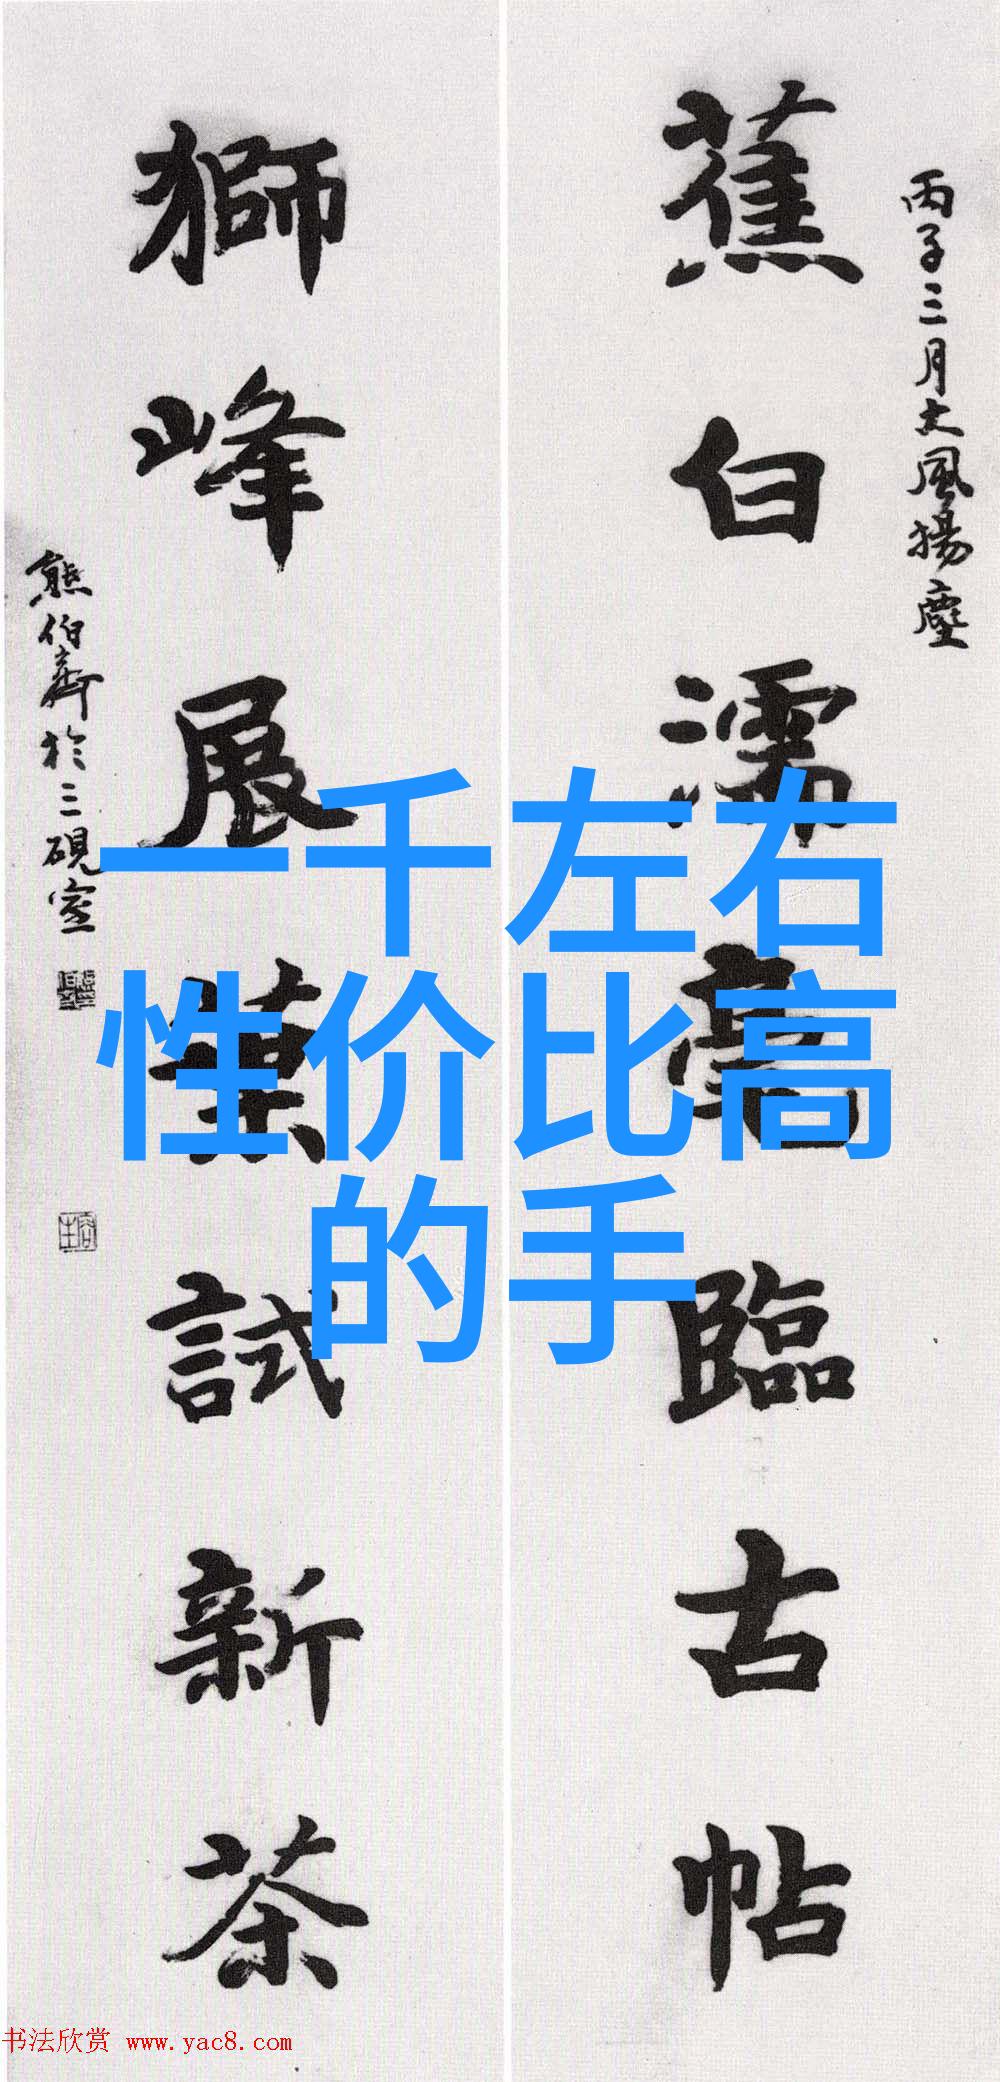 丙子三月大風揚塵
蕉白濡毫臨古帖
獅峰展葉試新茶
熊伯齊於三硯室
一千左右
性价比高
的手
书法欣赏 www.yac8.com